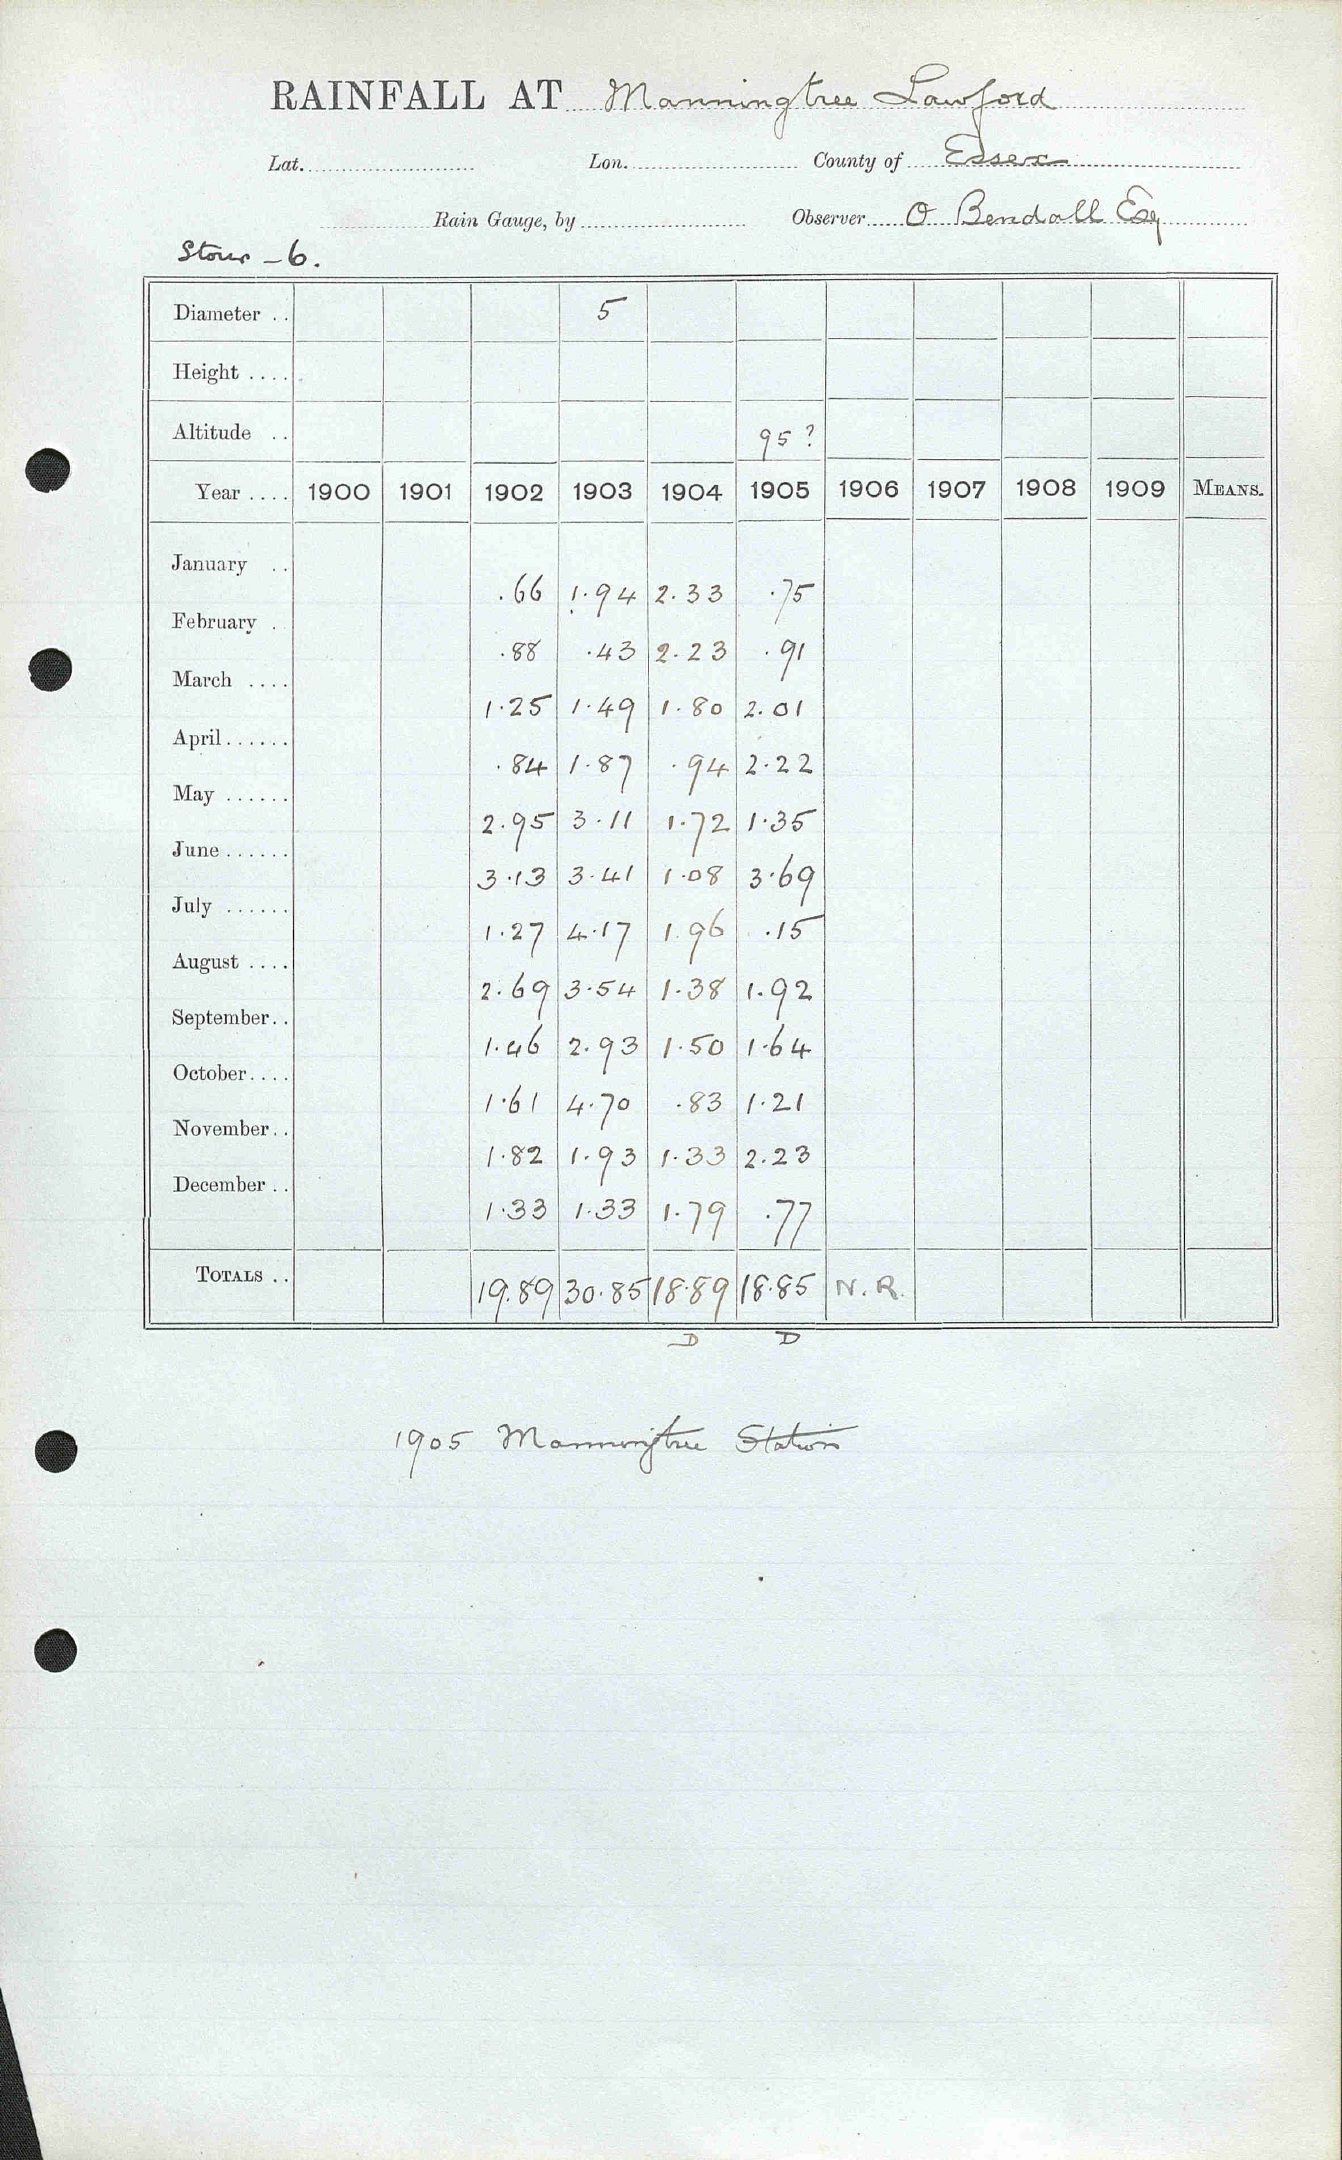 RAINFALL AT Manningtree Lawford
Lat. Lon. County of Essex
Rain Gauge, by Observer O Bendall Esq
Stour - 6.
Diameter .. 5
Height ....
Altitude .. 95?
Year .... 1900 1901 1902 1903 1904 1905 1906 1907 1908 1909 MEANS.
January ..
.66 1.94 2.33 .75
February .
.88 .43 2.23 .91
March ....
1.25 1.49 1.80 2.01
April......
.84 1.87 .94 2.22
May ......
2.95 3.11 1.72 1.35
June ......
3.13 3.41 1.08 3.69
July ......
1.27 4.17 1.96 .15
August ....
2.69 3.54 1.38 1.92
September..
1.46 2.93 1.50 1.64
October....
1.61 4.70 .83 1.21
November..
1.82 1.93 1.33 2.23
December ..
1.33 1.33 1.79 .77
TOTALS .. 19.89 30.85 18.89 18.85 N.R.
D D
1905 Manningtree Station